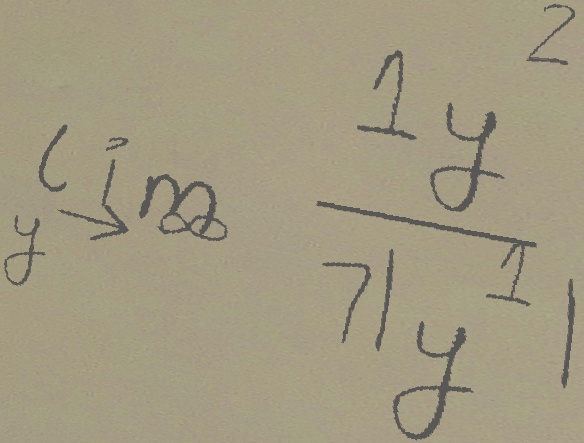 lim y→∞ 1y^2 / 7|y^1|